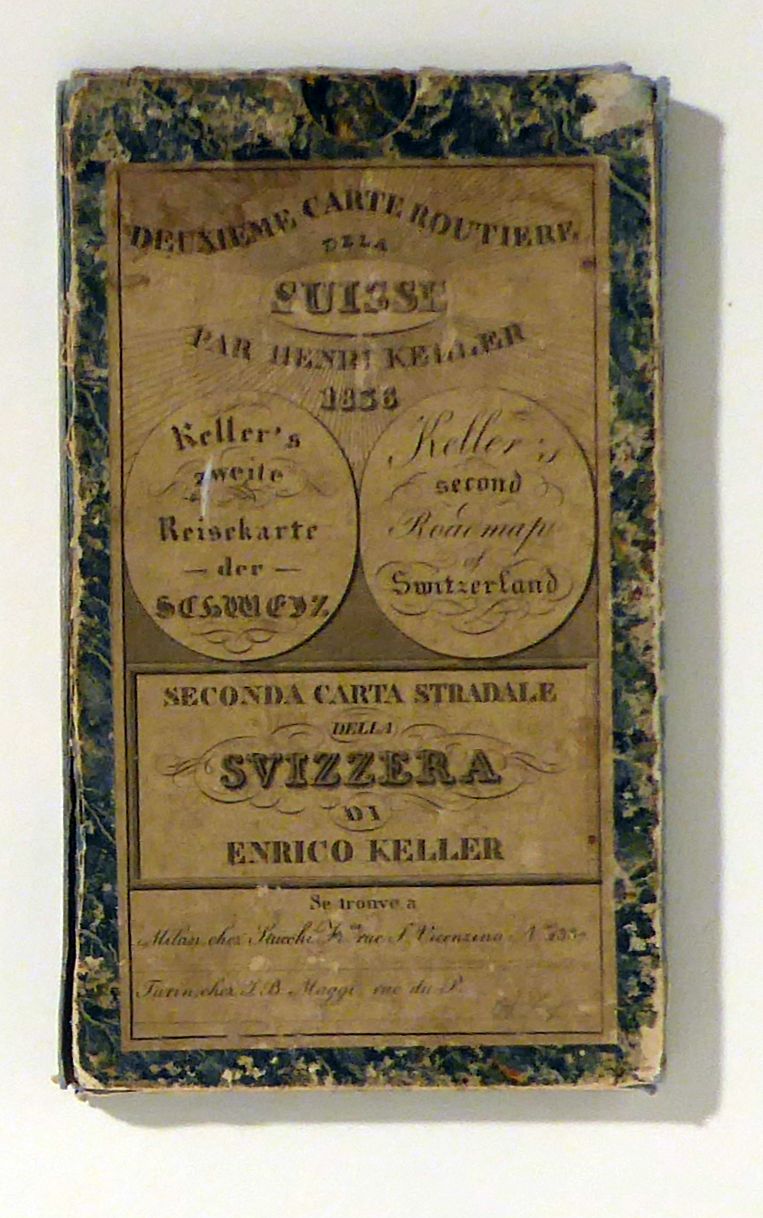 DEUXIEME CARTE ROUTIERE
DE LA
SUISSE
PAR HENRI KELLER
1836
Keller's
zweite
Reisekarte
— der —
SCHWEIZ
Keller's
second
Roadmap
of
Switzerland
SECONDA CARTA STRADALE
DELLA
SVIZZERA
DI
ENRICO KELLER
Se trouve a
Milan, chez Stucchi rue S. Vicenzino
Turin, chez J. B. Maggi rue du P.